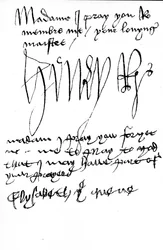 Madame I pray you Re
membre me your lovyng
maister
Henry R
madam I pray you forget
me not to pray to god
that I may have part of
your prayers
Elysabeth the quene